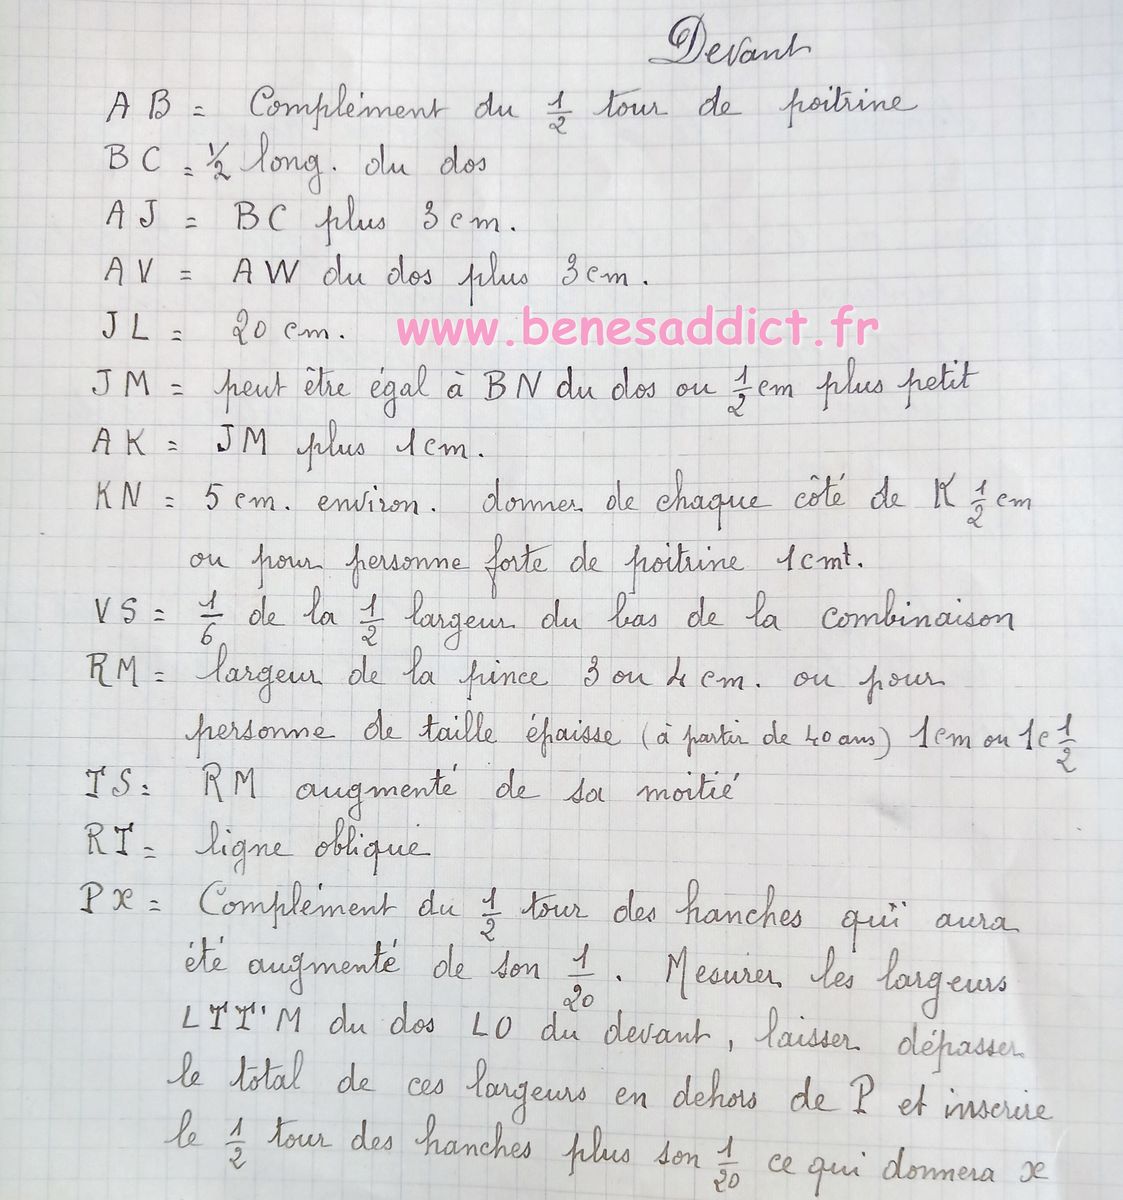 Devant
AB = Complément du 1/2 tour de poitrine
BC = 1/2 long. du dos
AJ = BC plus 3cm.
AV = AW du dos plus 3cm.
JL = 20 cm. www.benesaddict.fr
JM = peut être égal à BN du dos ou 1/2 cm plus petit
AK = JM plus 1cm.
KN = 5 cm. environ. donner de chaque côté de K 1/2 cm
ou pour personne forte de poitrine 1cmt.
VS = 1/6 de la 1/2 largeur du bas de la combinaison
RM = largeur de la pince 3 ou 4 cm. ou pour
personne de taille épaisse (à partir de 40 ans) 1cm ou 1c 1/2
TS = RM augmenté de sa moitié
RT = ligne oblique
Px = Complément du 1/2 tour des hanches qui aura
été augmenté de son 1/20. Mesurer les largeurs
LTT'M du dos LO du devant, laisser dépasser
le total de ces largeurs en dehors de P et inscrire
le 1/2 tour des hanches plus son 1/20 ce qui donnera x